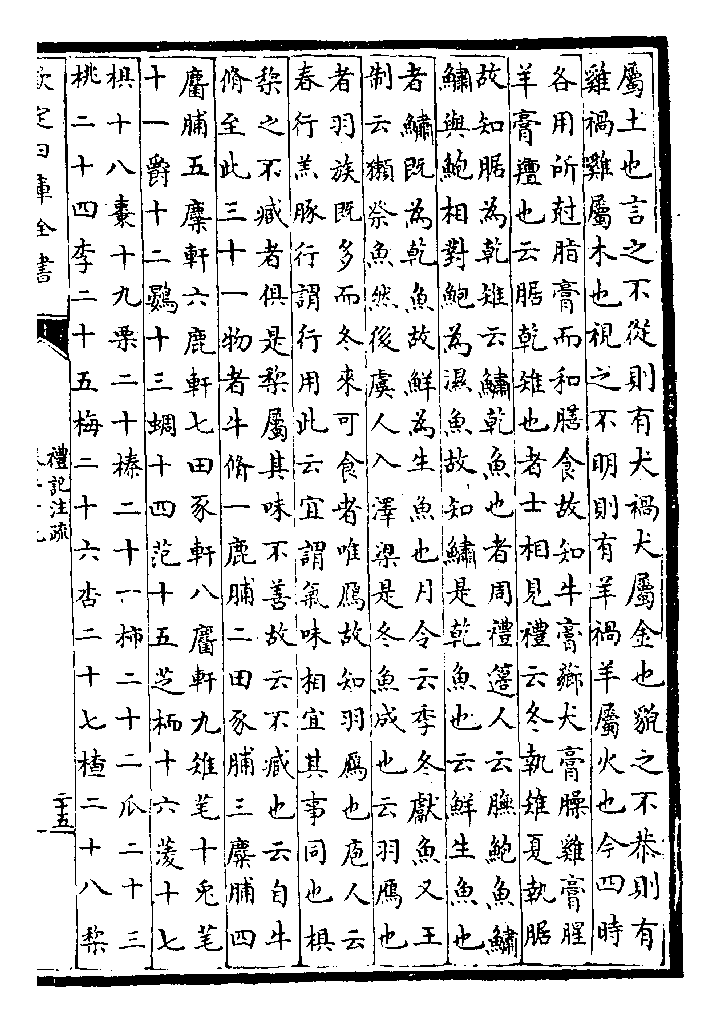 屬土也言之不從則有犬禍犬屬金也貌之不恭則有
雞禍雞屬木也視之不明則有羊禍羊屬火也今四時
各用所尅脂膏而和膳食故知牛膏薌犬膏臊雞膏腥
羊膏羶也云腒乾雉也者士相見禮云冬執雉夏執腒
故知腒為乾雉云鱐乾魚也者周禮籩人云膴鮑魚鱐
鱐與鮑相對鮑為濕魚故知鱐是乾魚也云鮮生魚也
者鱐既為乾魚故鮮為生魚也月令云季冬獻魚又王
制云獺祭魚然後虞人入澤梁是冬魚成也云羽鴈也
者羽族既多而冬來可食者唯鴈故知羽鴈也庖人云
春行羔豚行謂行用此云宜謂氣味相宜其事同也椇
棃之不臧者俱是棃屬其味不善故云不臧也云自牛
脩至此三十一物者牛脩一鹿脯二田豕脯三麋脯四
麕脯五麋軒六鹿軒七田豕軒八麕軒九雉芼十兎芼
十一爵十二鷃十三蜩十四范十五芝栭十六蔆十七
椇十八棗十九栗二十榛二十一柿二十二瓜二十三
桃二十四李二十五梅二十六杏二十七楂二十八棃
欽定四庫全書
禮記注疏
二十五